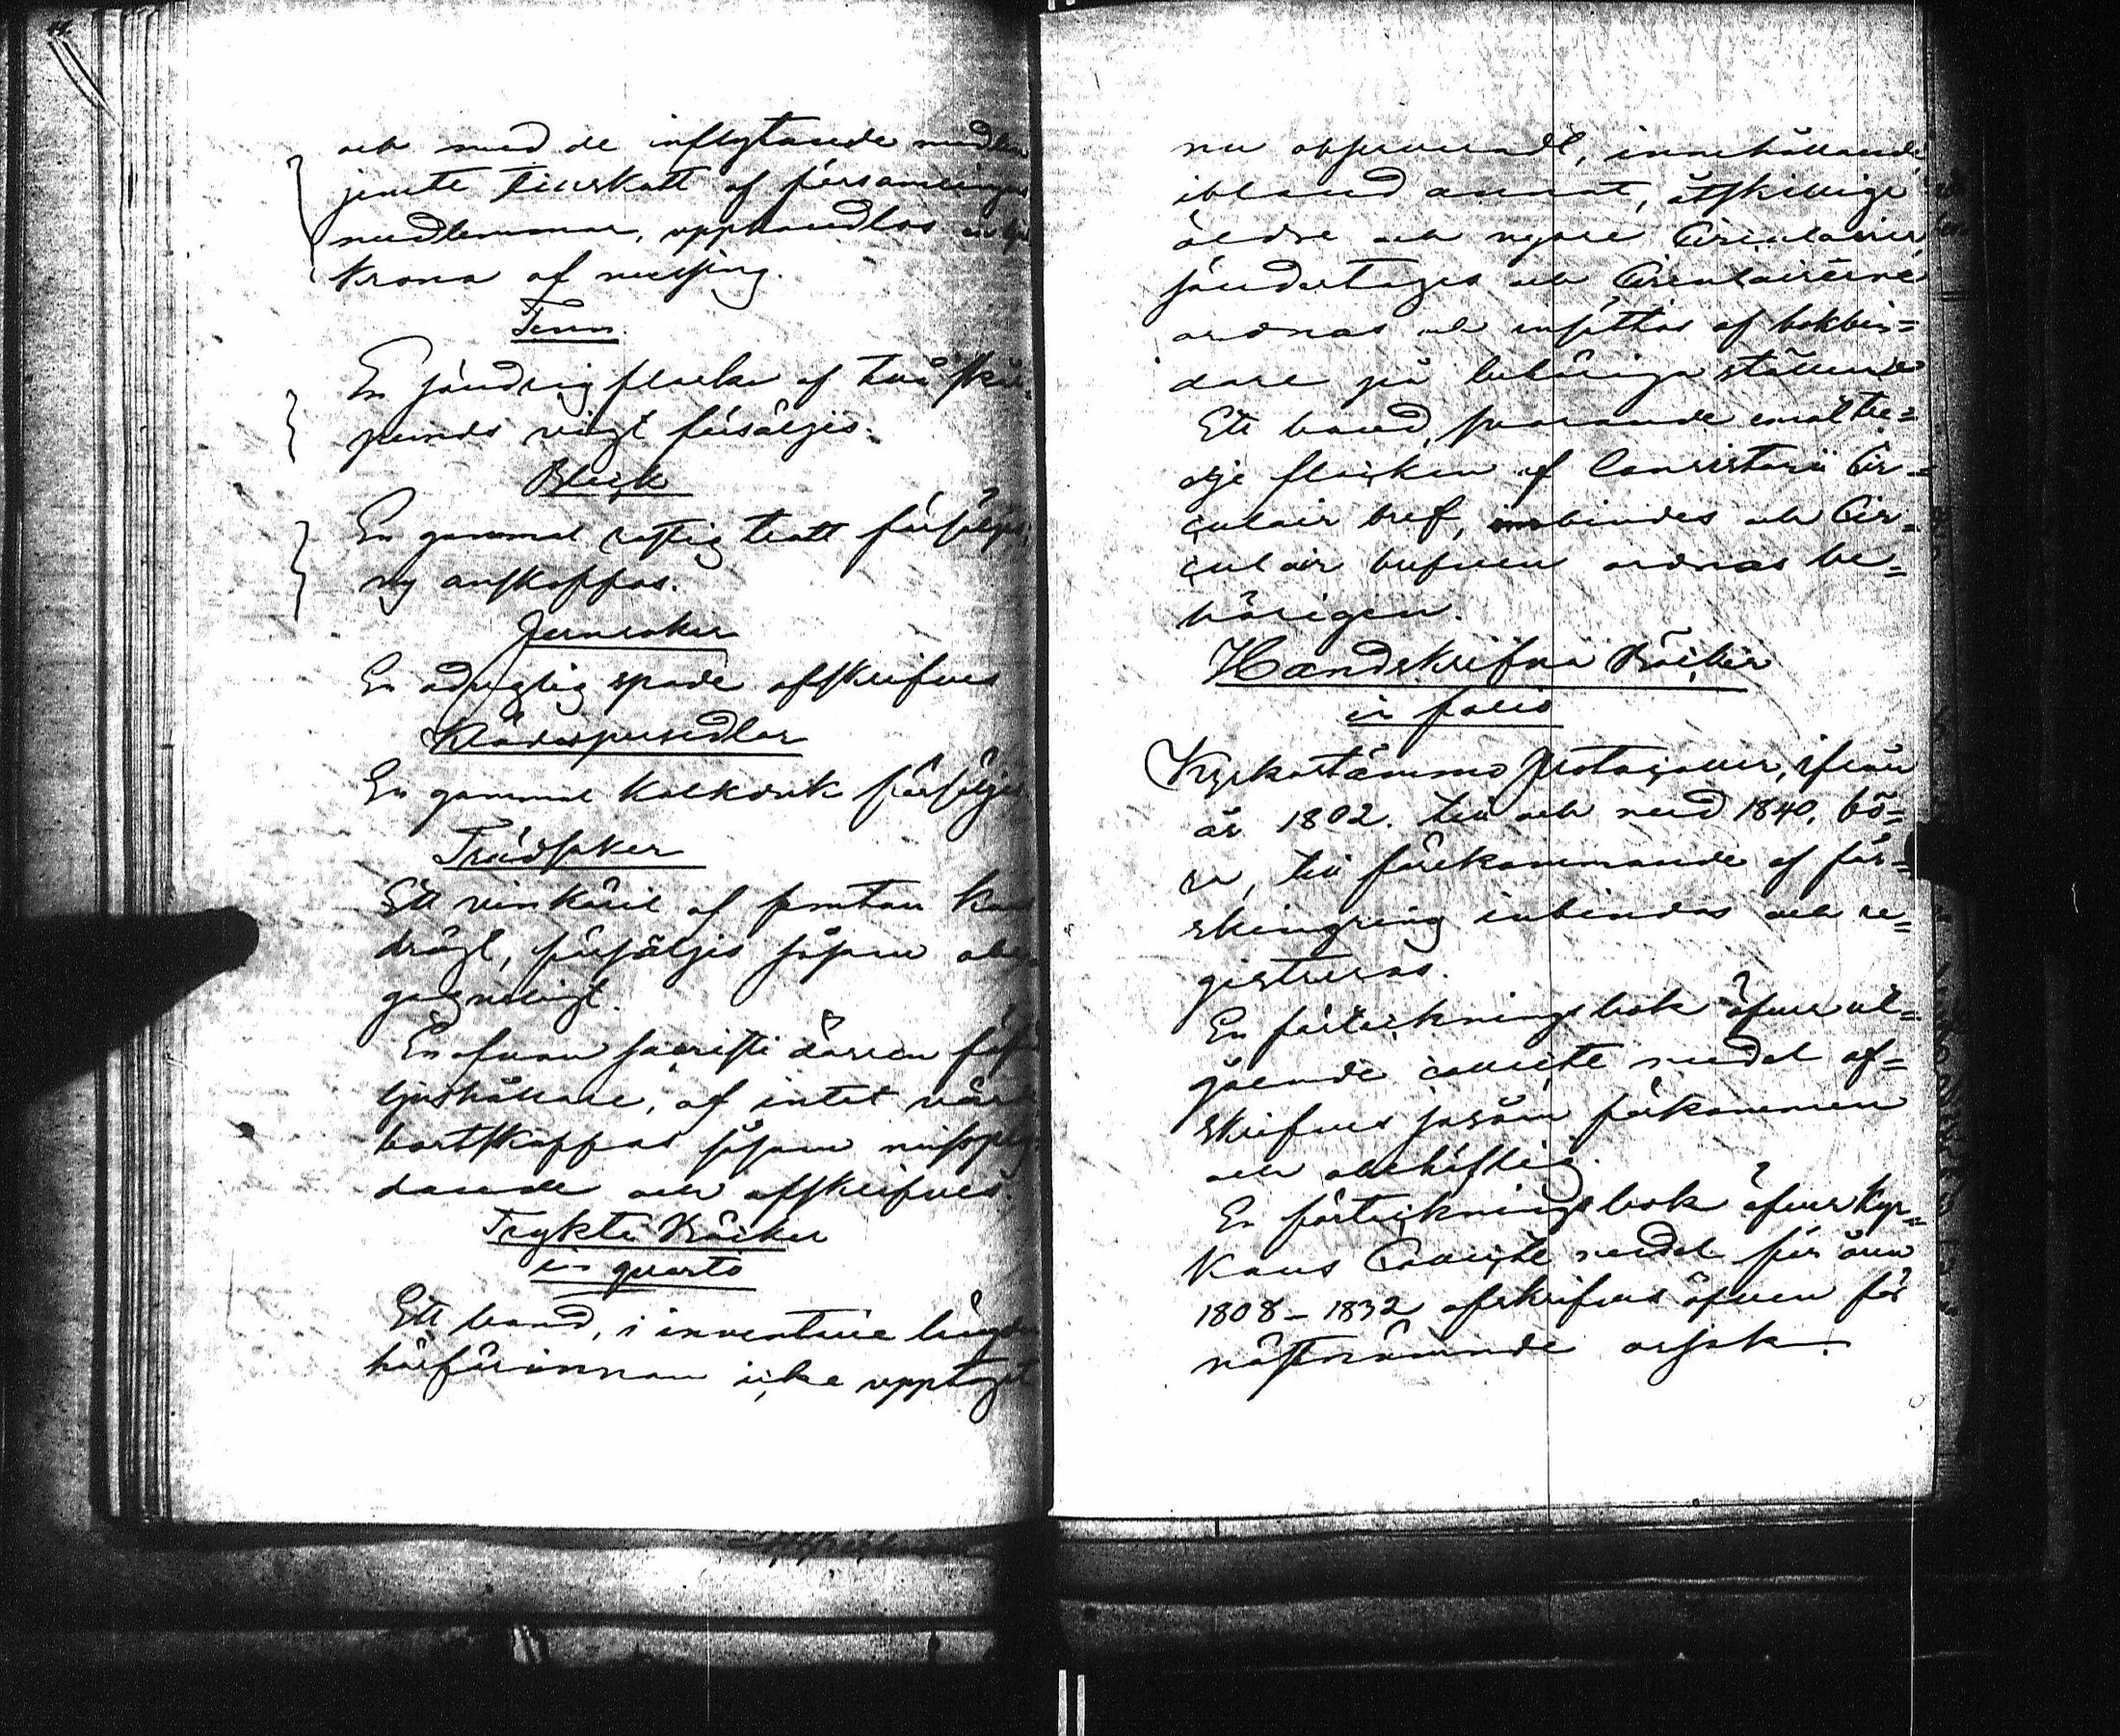 och med de inflytande medlen
jemte tillskott af församlingens
medlemmar, upphandlas en ljus
krona af messing.
Tenn.
En söndrig flaska af två skål-
punds vigt försäljes.
Bleck
En gammal rostig tratt försäljes,
ny anskaffas.
Jernsaker
En oduglig spade afskrifves
Klädespersedlar
En gammal Kalkduk försäljes
Trädsaker
Ett vinkäril af femton kan
drägt, försäljes såsom obe
gagneligt.
En ofvan sacristi dörren
ljushållare, af intet värde
bortskaffas såsom missply
dande och afskrifves.
Tryckte Böcker
in quarto
Ett band, i inventarie längden
härförinnan icke upptaget
nu observeradt, innehållande
ibland annat, åtskillige
äldre och nyare Circulairer
söndertages och Circulairerne
ordnas och insättas af bokbin=
dare på behöriga ställen
Ett band, svarande emot tre=
dje flocken af Consistorii Cir=
culair bref, inbindes och Cir=
culair brefven ordnas be=
hörigen.
Handskrifna Böcker
in folio
Kyrkostämmo Protocoller, ifrån
år 1802. till och med 1840, bö=
ra, till förekommande af för=
skingring inbindas och re=
gistreras.
En förteckningsbok öfver ut=
gående collecte medel af=
skrifves såsom förkommen
och obehöflig.
En förteckningsbok öfver Kyr=
kans Collecte medel för åren
1808-1832 afskrifves äfven för
nästnämnde orsak.